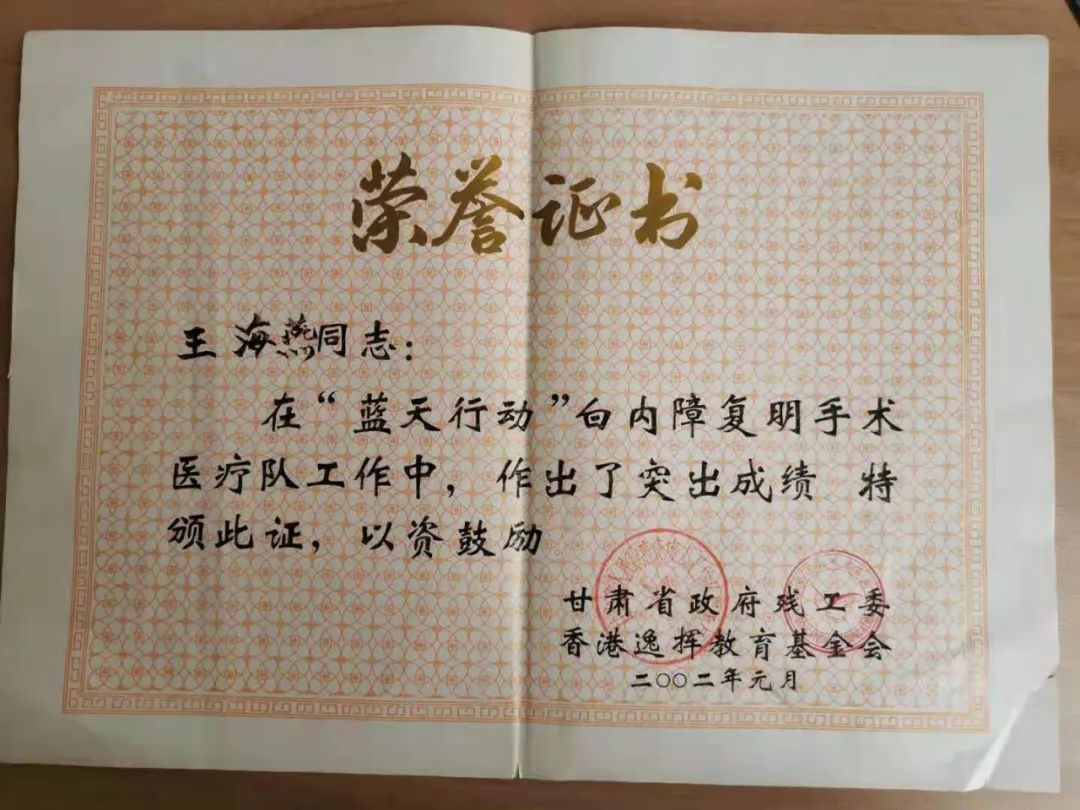 荣誉证书
王海燕同志：
在“蓝天行动”白内障复明手术
医疗队工作中，作出了突出成绩 特
颁此证，以资鼓励。
甘肃省政府残工委
香港逸挥教育基金会
二〇〇二年元月